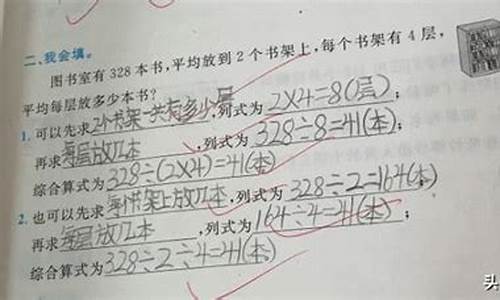 二、我会填。
图书室有 328 本书,平均放到 2 个书架上,每个书架有 4 层,
平均每层放多少本书?
1. 可以先求2个书架一共有多少层,列式为2×4=8(层);
再求每层放几本,列式为328÷8=41(本);
综合算式为328÷(2×4)=41(本)
2. 也可以先求每个书架上放几本,列式为328÷2=164(本)
再求每层放几本,列式为164÷4=41(本);
综合算式为328÷2÷4=41(本)
头